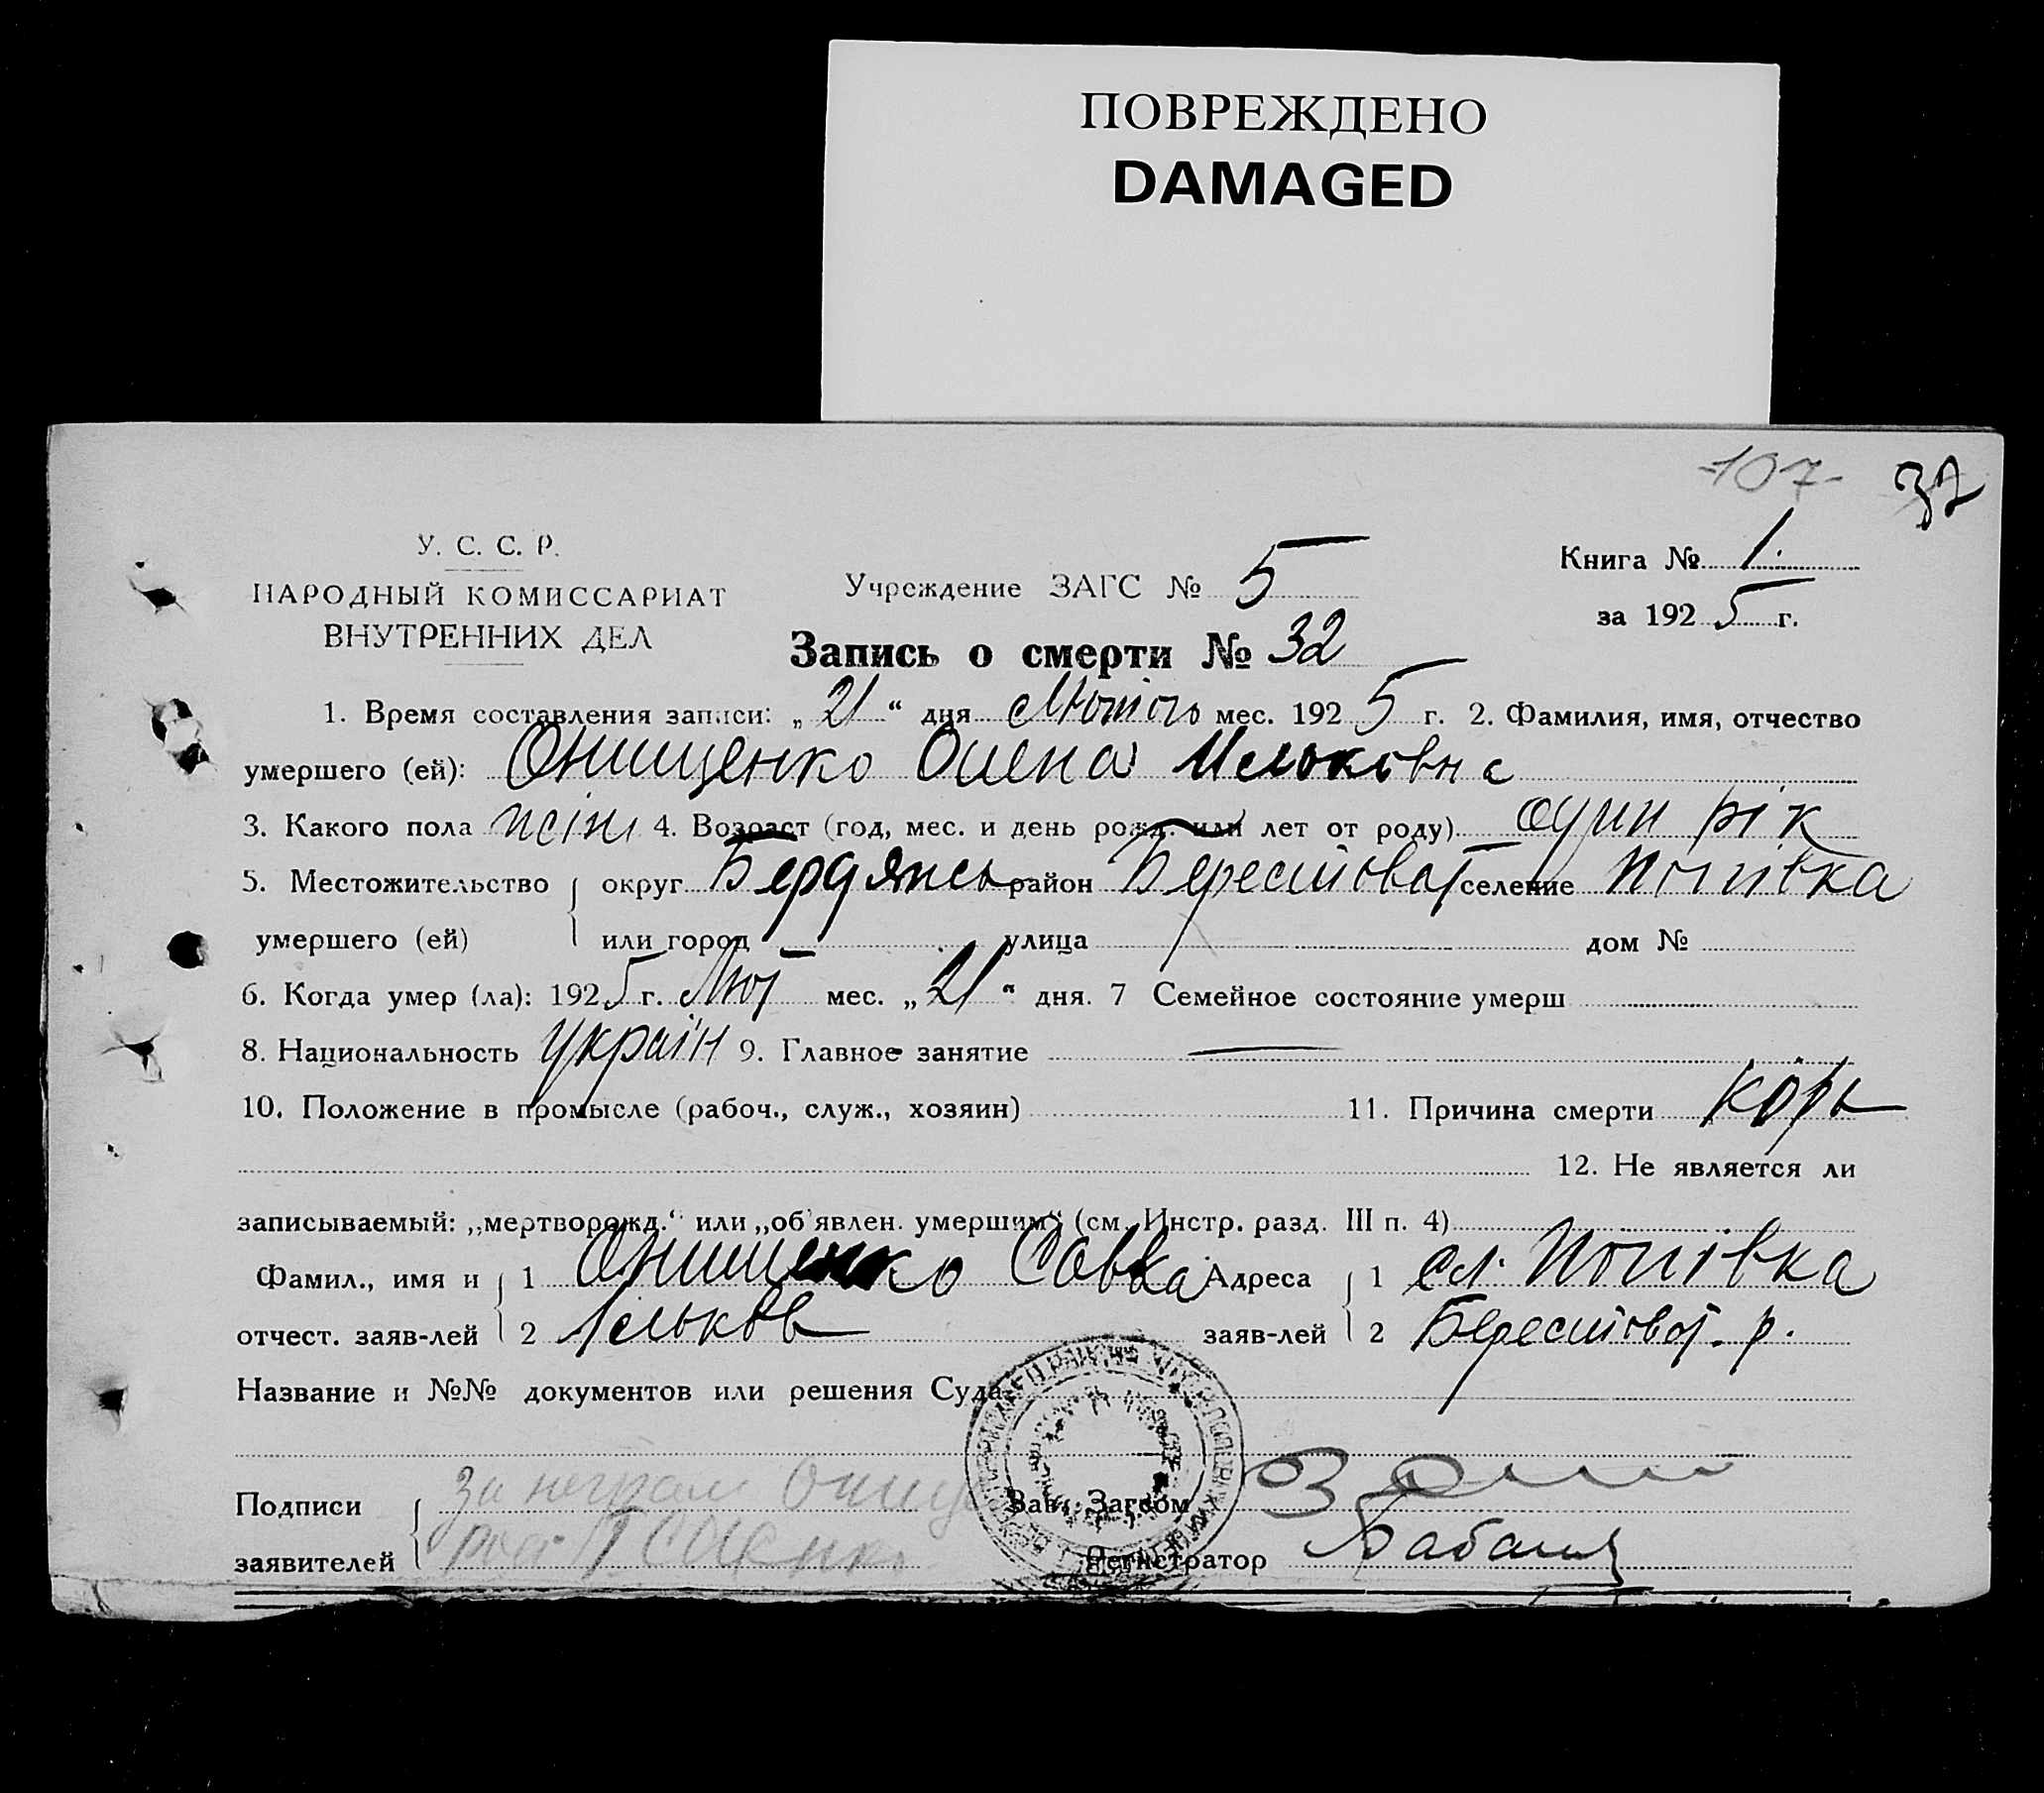 ПОВРЕЖДЕНО
DAMAGED
-107- 37
У. С. С. Р.
НАРОДНЫЙ КОМИССАРИАТ
ВНУТРЕННИХ ДЕЛ
Учреждение ЗАГС № 5
Книга № 1.
за 1925 г.
Запись о смерти № 32
1. Время составления записи: „ 21 “ дня Лютого мес. 1925 г. 2. Фамилия, имя, отчество
умершего (ей): Онищенко Олена
3. Какого пола жін 4. Возраст (год, мес. и день рожд. или лет от роду) один рік
5. Местожительство округ Бердянсь район Берестоват селение Попівка
умершего (ей) или город улица дом №
6. Когда умер (ла): 1925 г. Лют мес. „ 21 “ дня. 7 Семейное состояние умерш
8. Национальность україн 9. Главное занятие —
10. Положение в промысле (рабоч., служ., хозяин) 11. Причина смерти корь
12. Не является ли
записываемый: „мертворожд.“ или „об'явлен. умершим“ (см. Инстр. разд. III п. 4)
Фамил., имя и 1 Онищенко Савка Адреса 1 сл. Попівка
отчест. заяв-лей 2 заяв-лей 2 Берестоват. р.
Название и №№ документов или решения Суда
Подписи за неграм Онищ Зав. Загсом
заявителей Регистратор